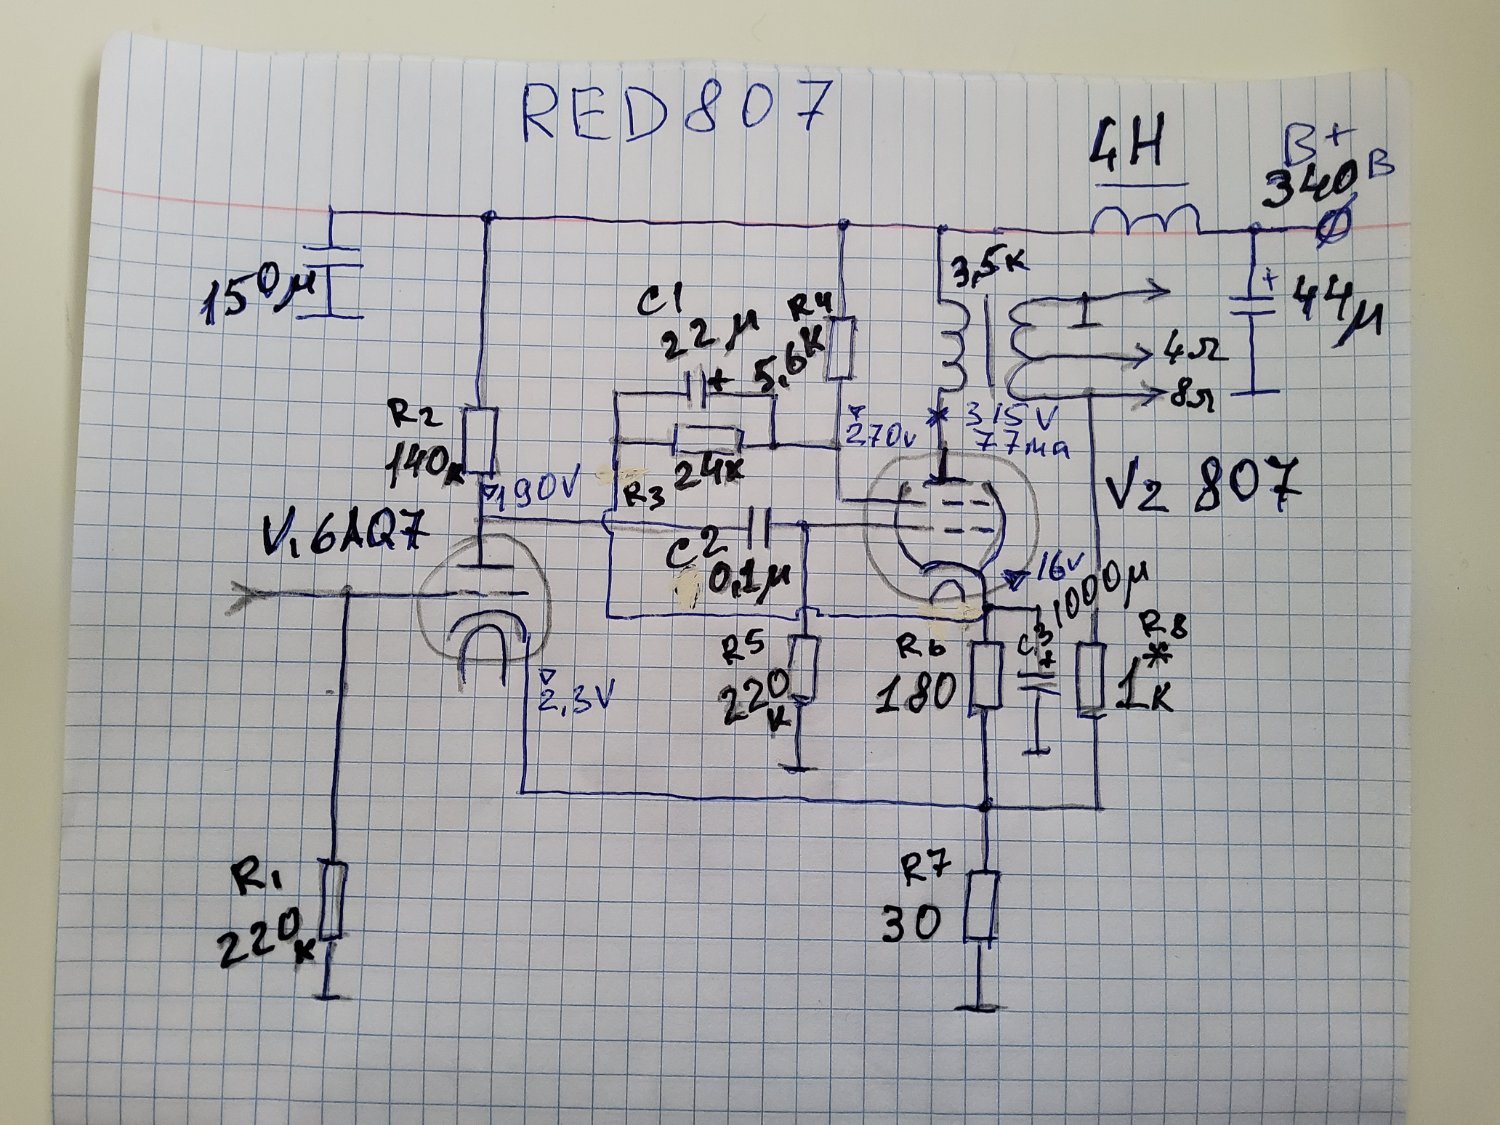 RED807
4H
B+
340В
150µ
C1
22µ
+
R4
5,6K
3,5K
+
44µ
I
4Ω
8Ω
R2
140K
190V
R3
24K
270V
315V
77ма
V1 6AQ7
C2
0,1µ
V2 807
16V
1000µ
C3
+
2,3V
R5
220K
R6
180
R8
*
1K
R1
220K
R7
30